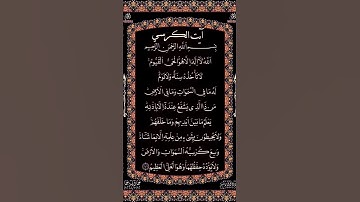 آیت الکرسی
بِسْمِ اللهِ الرَّحْمٰنِ الرَّحِيْمِ
اَللهُ لَآ اِلٰهَ اِلَّا هُوَ الْحَيُّ الْقَيُّوْمُ
لَا تَأْخُذُهٗ سِنَةٌ وَّلَا نَوْمٌ
لَهٗ مَا فِى السَّمٰوٰتِ وَمَا فِى الْاَرْضِ
مَنْ ذَا الَّذِىْ يَشْفَعُ عِنْدَهٗٓ اِلَّا بِاِذْنِهٖ
يَعْلَمُ مَا بَيْنَ اَيْدِيْهِمْ وَمَا خَلْفَهُمْ
وَلَا يُحِيْطُوْنَ بِشَىْءٍ مِّنْ عِلْمِهٖٓ اِلَّا بِمَا شَآءَ
وَسِعَ كُرْسِيُّهُ السَّمٰوٰتِ وَالْاَرْضَ
وَلَا يَئُوْدُهٗ حِفْظُهُمَا وَهُوَ الْعَلِىُّ الْعَظِيْمُ